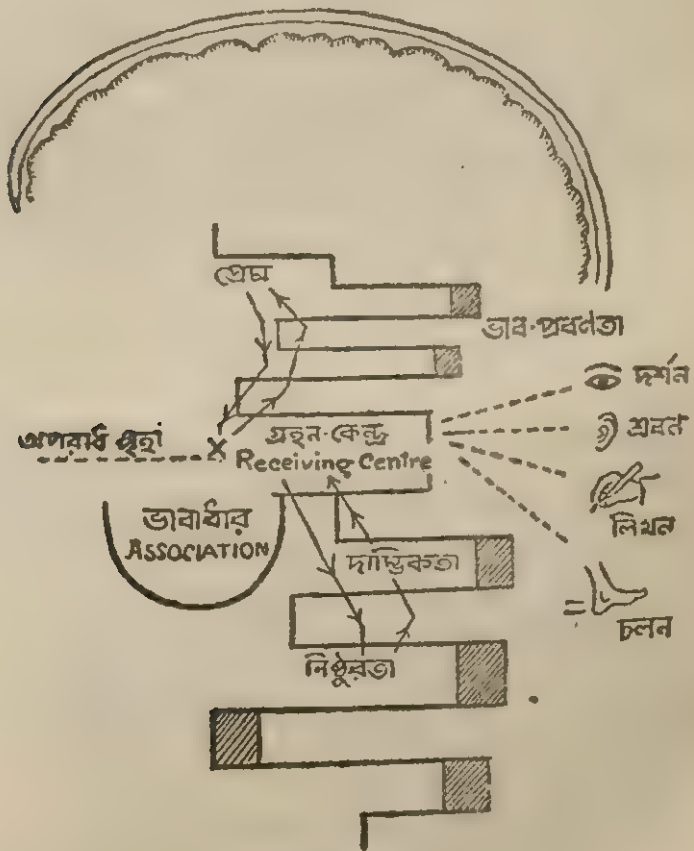 প্রেম
ভাব-প্রবণতা
দর্শন
শ্রবণ
লিখন
চলন
অপরাধ স্পৃহা
গ্রহন-কেন্দ্র
Receiving Centre
ভাবাধার
ASSOCIATION
দাম্ভিকতা
নিষ্ঠুরতা